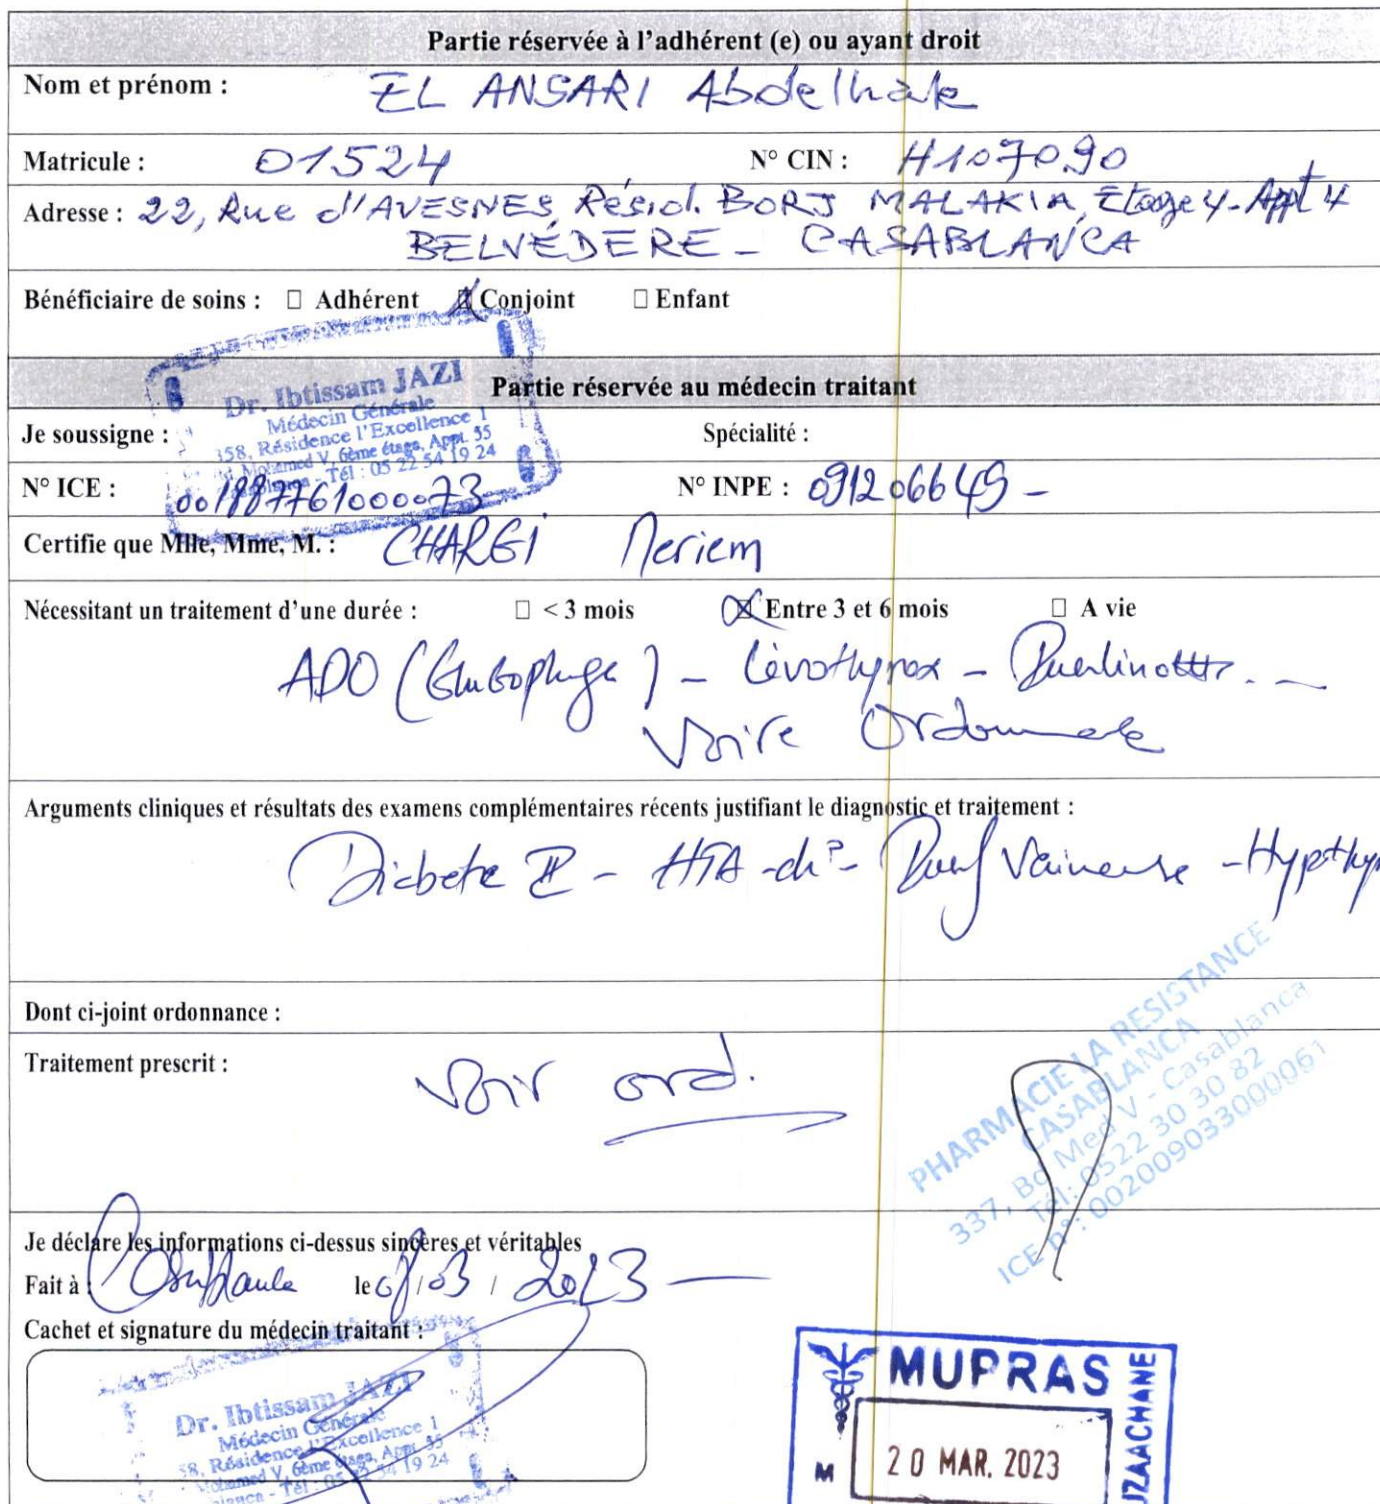 Partie réservée à l'adhérent (e) ou ayant droit
Nom et prénom : EL ANSARI Abdelhak
Matricule : 01524 N° CIN : H107090
Adresse : 22, Rue d'AVESNES, Résid. BORJ MALAKIA, Etage 4 - Appt 4
BELVÉDERE - CASABLANCA
Bénéficiaire de soins : ☐ Adhérent ☒ Conjoint ☐ Enfant
Partie réservée au médecin traitant
Dr. Ibtissam JAZI
Médecin Générale
358, Résidence l'Excellence 1
Mohamed V, 6ème étage, Appt. 55
Tél : 05 22 54 19 24
Je soussigne : Spécialité :
N° ICE : 001887761000073 N° INPE : 091206649 -
Certifie que Mlle, Mme, M. : CHARGI Meriem
Nécessitant un traitement d'une durée : ☐ < 3 mois ☒ Entre 3 et 6 mois ☐ A vie
ADO (Glucophage) - Levothyrox -
Voire Ordonnance
Arguments cliniques et résultats des examens complémentaires récents justifiant le diagnostic et traitement :
Diabete II - HTA - Veineuse - Hypothyr
Dont ci-joint ordonnance :
Traitement prescrit : Voir ord.
PHARMACIE LA RESISTANCE
CASABLANCA
337, Bd Med V - Casablanca
Tél: 0522 30 30 82
ICE n°: 002009033000061
Je déclare les informations ci-dessus sincères et véritables
Fait à : Casablanca le /03 / 2023
Cachet et signature du médecin traitant :
Dr. Ibtissam JAZI
Médecin Générale
58, Résidence l'Excellence 1
Mohamed V, 6ème étage, Appt. 55
Tél : 05 22 54 19 24
MUPRAS
20 MAR. 2023
M
UZAACHANE